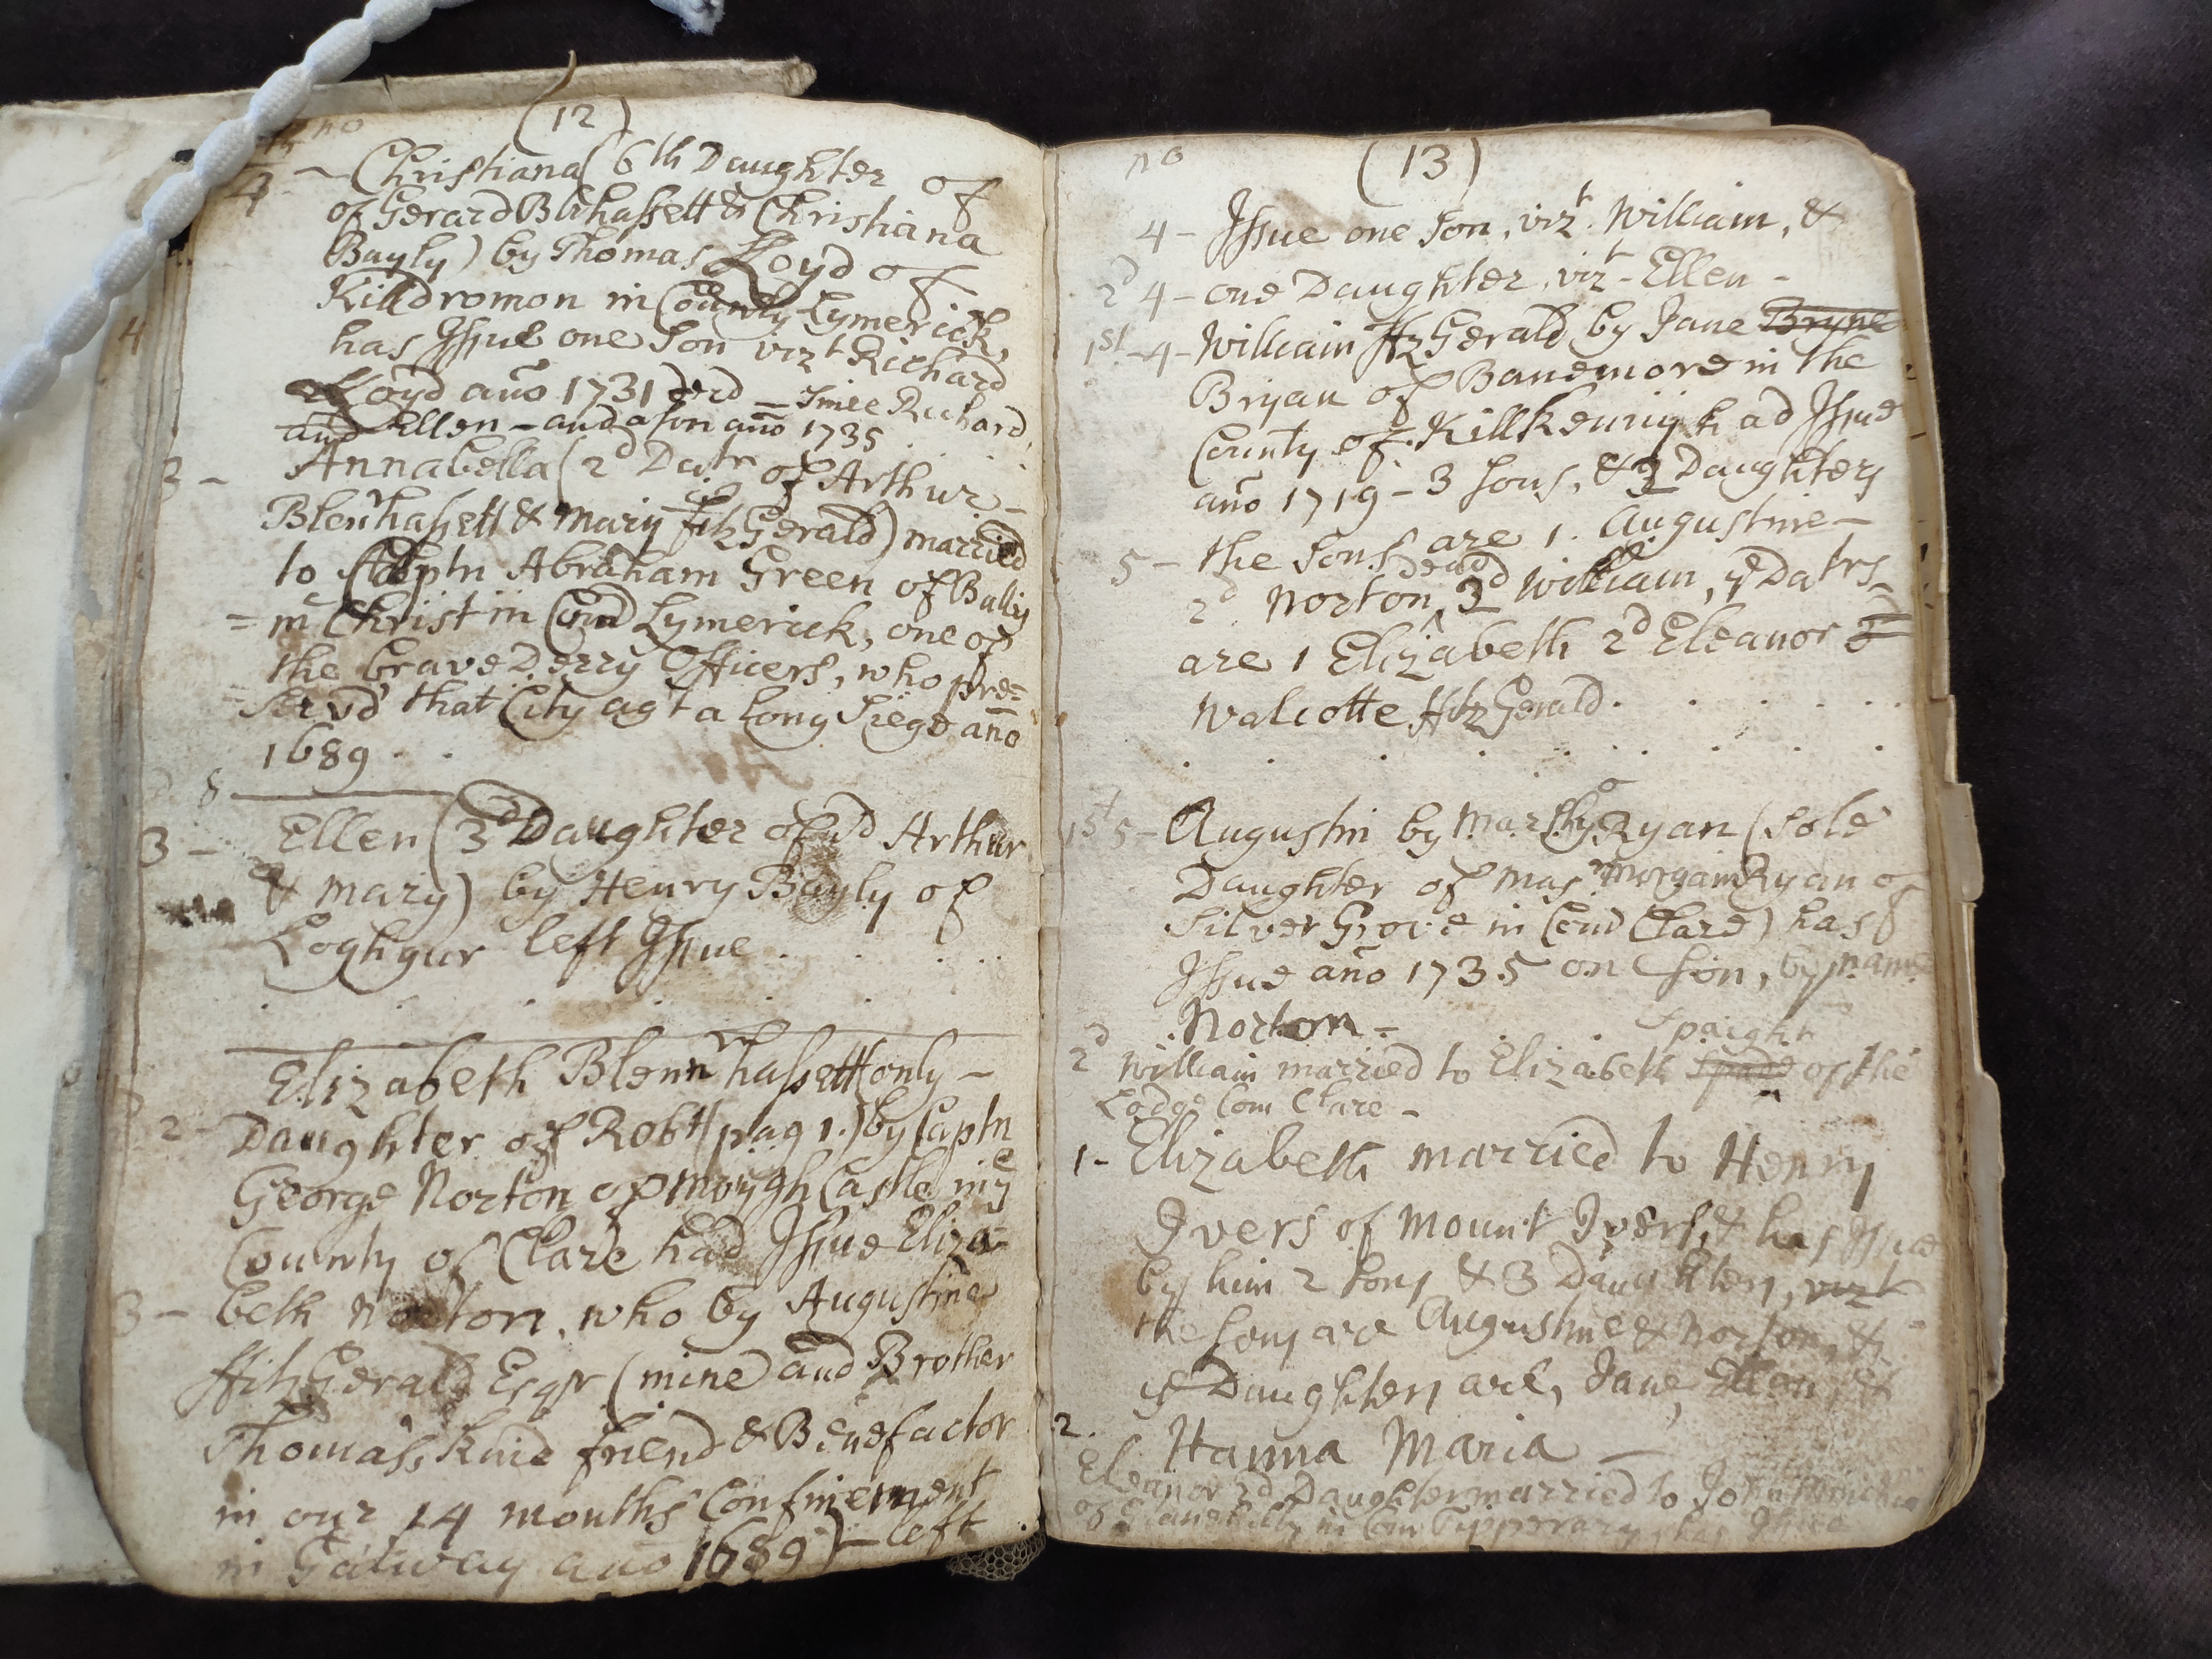 no (12)
4 - Christiana (6th Daughter of
of Gerard Blenhassett & Christiana
Bayly) by Thomas Lloyd of
Killdromon in County Lymerick,
has Issue one Son vizt Richard
Lloyd año 1731 ded - Since Richard,
and Ellen - and a son año 1735
3 - Annabella (2d Datr of Arthur -
Blenhassett & Mary fitzGerald) married
to Captn Abraham Green of Bally
= m Christ in Coud Lymerick, one of
the brave Derry Officers, who pre=
= serv'd that City agt a long Siege año
1689 . .
3 - Ellen (3d Daughter of sd Arthur
& Mary) by Henry Bayly of
Loghgur left Issue . . . . .
Elizabeth Blennhassett (only -
2 - Daughter of Robt (pag 1.) by Captn
George Norton of Moygh Castle in ye
County of Clare had Issue Eliza=
3 - beth Norton, who by Augustine
ffitzGerald Esqr (mine and Brother
Thomas's kind friend & Benefactor
in our 14 months Confinement
in Galway año 1689) - left
no (13)
4 - Issue one Son, vizt. William, &
2d 4 - one Daughter, vizt - Ellen -
1st - 4 - William ffitzGerald by Jane Bryne
Bryan of Banemore in the
County of Killkenny had Issue
año 1719 - 3 Sons, & 3 Daughters
5 - the Sons are 1. Augustine -
dead
2d Norton, 3d William, ye Datrs -
are 1 Elizabeth 2d Eleanor 3
Walcotte ffitzGerald . . . . . .
1st 5 - Augustin by Ryan (sole
Daughter of Morgan Ryan of
Silver Grove in Coud Clare) has
Issue año 1735 on Son, by name
Norton -
Spaight
2d William married to Elizabeth of the
Lodge Com Clare -
1 - Elizabeth married to Henry
Ivers of Mount Ivers, & has Issue
by him 2 Sons & 3 Daughters, vizt
the Sons are Augustine & Norton, &
ye Daughters are, Jane, Ellen, &
2. Hanna Maria -
Eleanor 2d Daughter married to John
of in Com Tipperary, has Issue